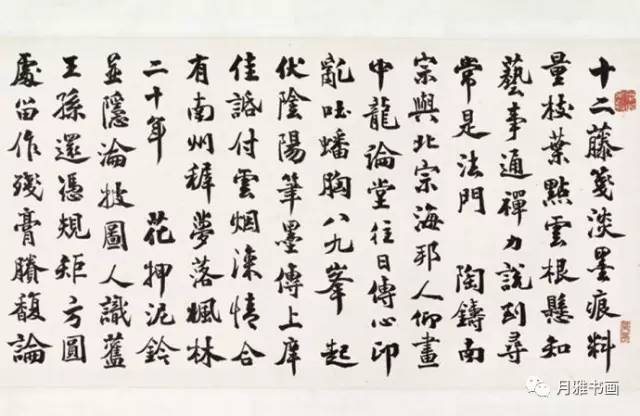 十二藤箋淡墨痕料
量枝葉點雲根懸知
藝事通禪力說到尋
常是法門 陶鑄南
宗與北宗海邦人仰畫
中龍論堂往日傳心印
亂吐蟠胸八九峯 起
伏陰陽筆墨傳上庠
佳話付雲烟深情合
有南州穉夢落楓林
二十年 花押泥鈐
並隱淪披圖人識舊
王孫還憑規矩方圓
處畱作殘膏賸馥論
月雅书画